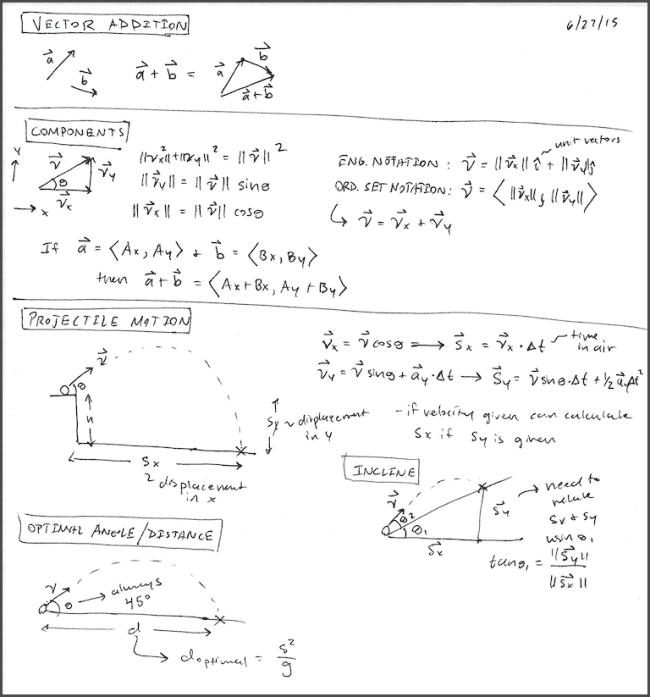 VECTOR ADDITION
6/27/15
a⃗
b⃗
a⃗ + b⃗ =
a⃗
b⃗
a⃗+b⃗
COMPONENTS
y
x
v⃗
θ
v⃗y
v⃗x
||vx²||+||vy||² = ||v⃗||²
||v⃗y|| = ||v⃗|| sinθ
||v⃗x|| = ||v⃗|| cosθ
unit vectors
ENG. NOTATION: v⃗ = ||v⃗x|| î + ||v⃗y|| ĵ
ORD. SET NOTATION: v⃗ = ⟨||v⃗x||, ||v⃗y||⟩
↳ v⃗ = v⃗x + v⃗y
If a⃗ = ⟨Ax, Ay⟩ & b⃗ = ⟨Bx, By⟩
then a⃗ + b⃗ = ⟨Ax+Bx, Ay+By⟩
PROJECTILE MOTION
v⃗
θ
h
Sx
~ displacement
in x
Sy ~ displacement
in y
v⃗x = v⃗ cosθ → S⃗x = v⃗x · Δt
time
in air
v⃗y = v⃗ sinθ + a⃗y · Δt → S⃗y = v⃗ sinθ · Δt + 1/2 a⃗y Δt²
- if velocity given can calculate
Sx if Sy is given
INCLINE
v⃗
θ2
θ1
S⃗x
S⃗y
→ need to
relate
Sx & Sy
using θ1
tanθ1 = ||S⃗y|| / ||S⃗x||
OPTIMAL ANGLE/DISTANCE
v
θ → always
45°
d
↳ doptimal = s²/g